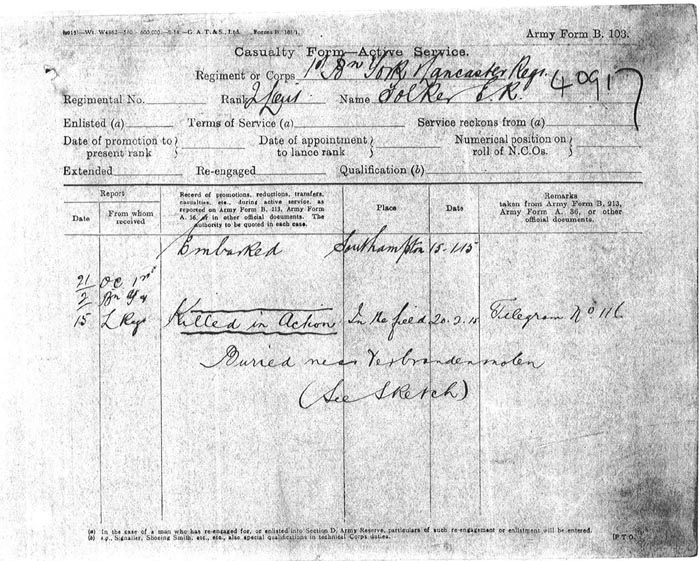 Army Form B. 103.
Casualty Form—Active Service.
Regiment or Corps 1st Bn York & Lancaster Regt.
4091
Regimental No. Rank 2 Lieut Name Folker E. R.
Enlisted (a) Terms of Service (a) Service reckons from (a)
Date of promotion to present rank } Date of appointment to lance rank } Numerical position on roll of N.C.Os. }
Extended Re-engaged Qualification (b)
Report
Date From whom received
Record of promotions, reductions, transfers, casualties, etc., during active service, as reported on Army Form B. 213, Army Form A. 36, or in other official documents. The authority to be quoted in each case.
Place Date
Remarks taken from Army Form B. 213, Army Form A. 36, or other official documents.
Embarked Southampton 15.1.15
21/2 15 OC 1st Bn Y & L Regt Killed in Action In the field 20.2.15 Telegram No 116
Buried near Verbrandenmolen
(See Sketch)
(a) In the case of a man who has re-engaged for, or enlisted into Section D, Army Reserve, particulars of such re-engagement or enlistment will be entered.
(b) e.g., Signaller, Shoeing Smith, etc., etc., also special qualifications in technical Corps duties.
[P.T.O.